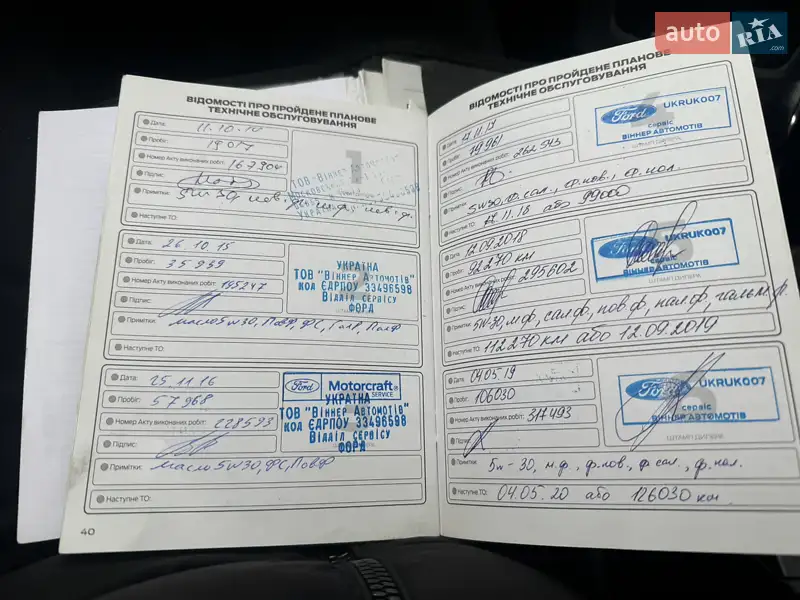 auto RIA .com
ВІДОМОСТІ ПРО ПРОЙДЕНЕ ПЛАНОВЕ
ТЕХНІЧНЕ ОБСЛУГОВУВАННЯ
Дата: 11.10.14
Пробіг: 19017
Номер Акту виконаних робіт: 167904
Підпис:
Примітки: 5W30
Наступне ТО:
1
ТОВ "Віннер Автомотів"
УКРАЇНА
Дата: 26.10.15
Пробіг: 35939
Номер Акту виконаних робіт: 195247
Підпис:
Примітки: масло 5w30, ПовФ, ФС, ГалФ, ПалФ
Наступне ТО:
УКРАЇНА
ТОВ "Віннер Автомотів"
код ЄДРПОУ 33496598
Відділ сервісу
ФОРД
Дата: 25.11.16
Пробіг: 57968
Номер Акту виконаних робіт: 228593
Підпис:
Примітки: масло 5W30, ФС, ПовФ
Наступне ТО:
Ford Motorcraft SERVICE
УКРАЇНА
ТОВ "Віннер Автомотів"
код ЄДРПОУ 33496598
Відділ сервісу
ФОРД
40
ВІДОМОСТІ ПРО ПРОЙДЕНЕ ПЛАНОВЕ
ТЕХНІЧНЕ ОБСЛУГОВУВАННЯ
Дата: 17.11.17
Пробіг: 79961
Номер Акту виконаних робіт: 262543
Підпис:
Примітки: 5W30, ф. сал., ф. пов., ф. пал.
Наступне ТО: 17.11.18 або 99000
Ford UKRUK007
сервіс
ВІННЕР АВТОМОТІВ
Дата: 12.09.2018
Пробіг: 92270 км
Номер Акту виконаних робіт: 295602
Підпис:
Примітки: 5W30, м.ф, сал.ф, пов.ф, пал.ф, гальм.р.
Наступне ТО: 112270 км або 12.09.2019
Ford UKRUK007
сервіс
ВІННЕР АВТОМОТІВ
Дата: 04.05.19
Пробіг: 106030
Номер Акту виконаних робіт: 317493
Підпис:
Примітки: 5w-30, м.ф., ф.пов., ф.сал., ф.пал.
Наступне ТО: 04.05.20 або 126030 км
Ford UKRUK007
сервіс
ВІННЕР АВТОМОТІВ
ШТАМП ДИЛЕРА